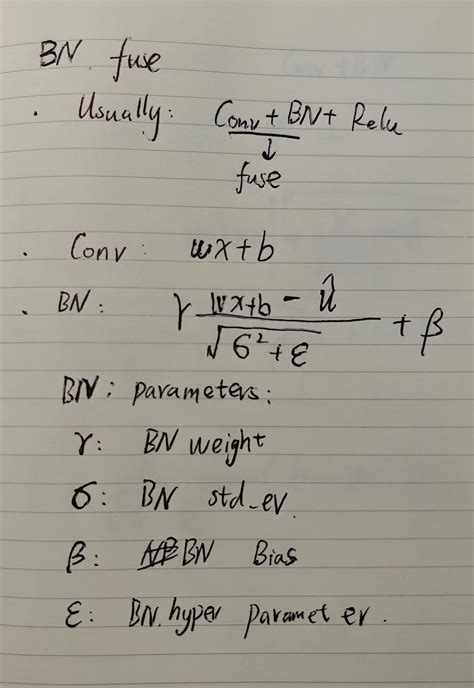 BN fuse
· Usually: Conv + BN + Relu
↓
fuse
· Conv: wx+b
· BN: γ (wx+b - û) / √(σ²+ε) + β
BN: parameters:
γ: BN weight
σ: BN std_ev
β: BN Bias
ε: BN.hyper parameter.